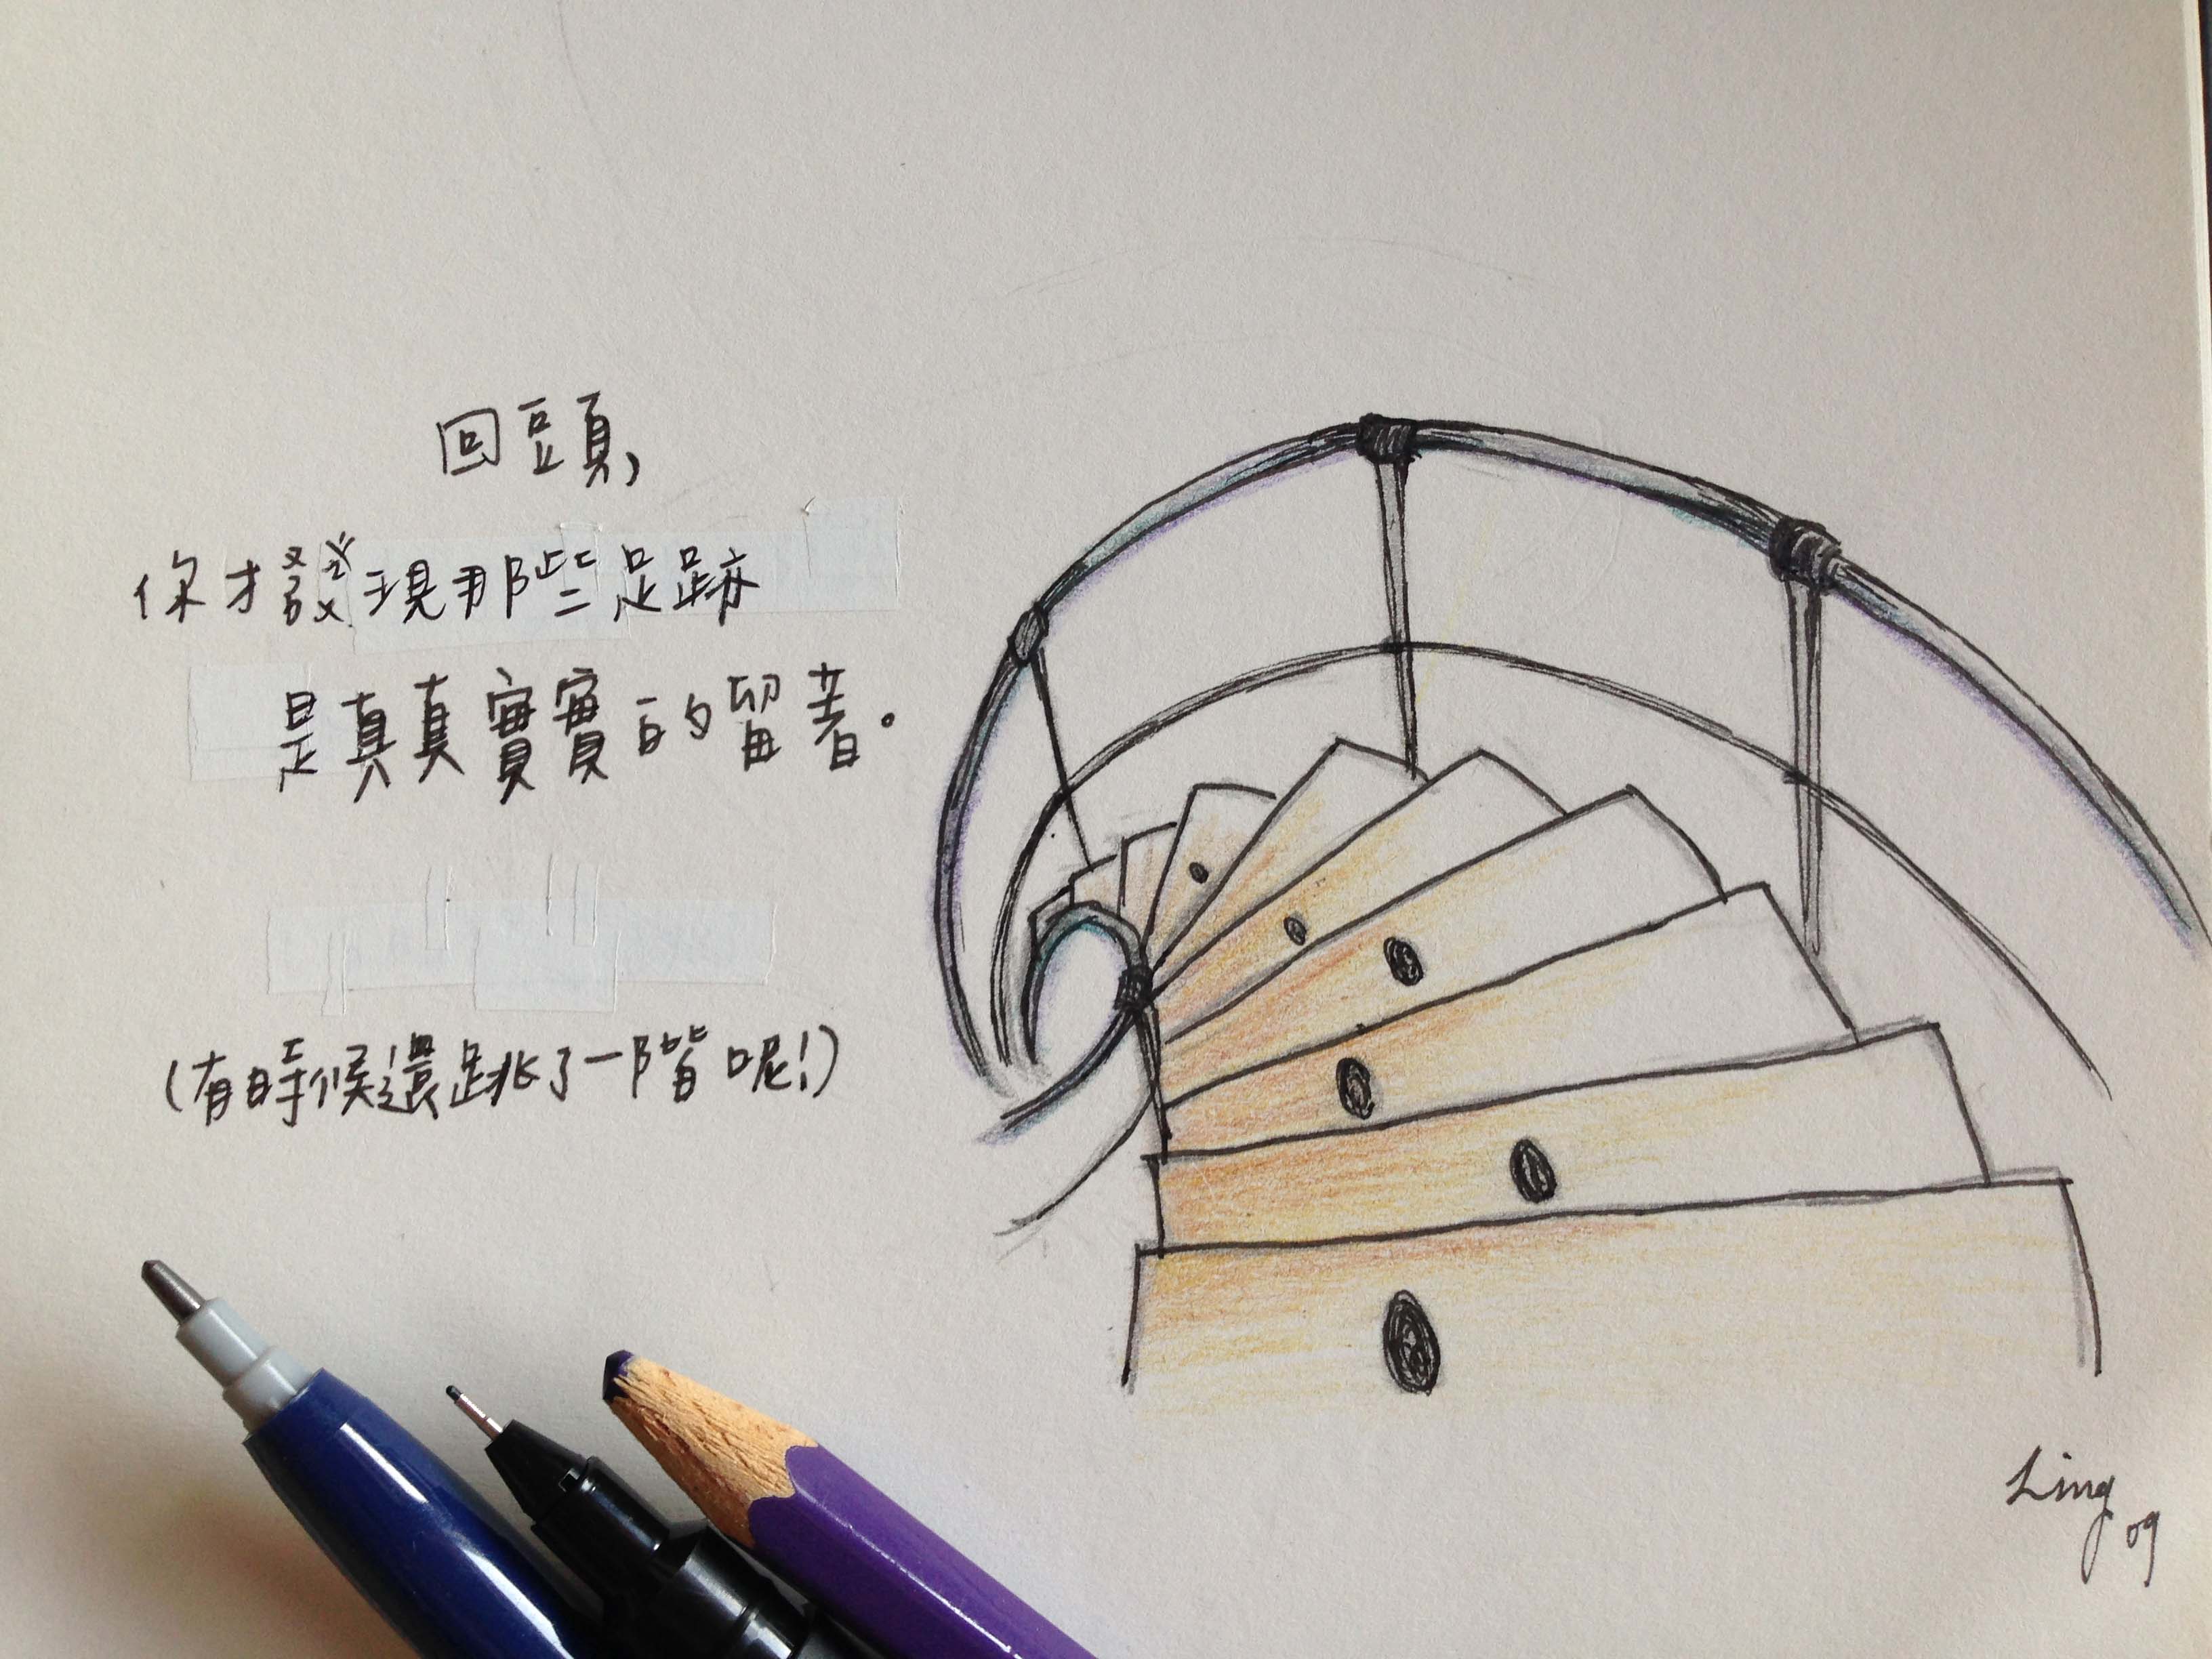 回頭，
你才發現那些足跡
是真真實實的留著。
（有時候還跳了一階呢！）
Ling
09